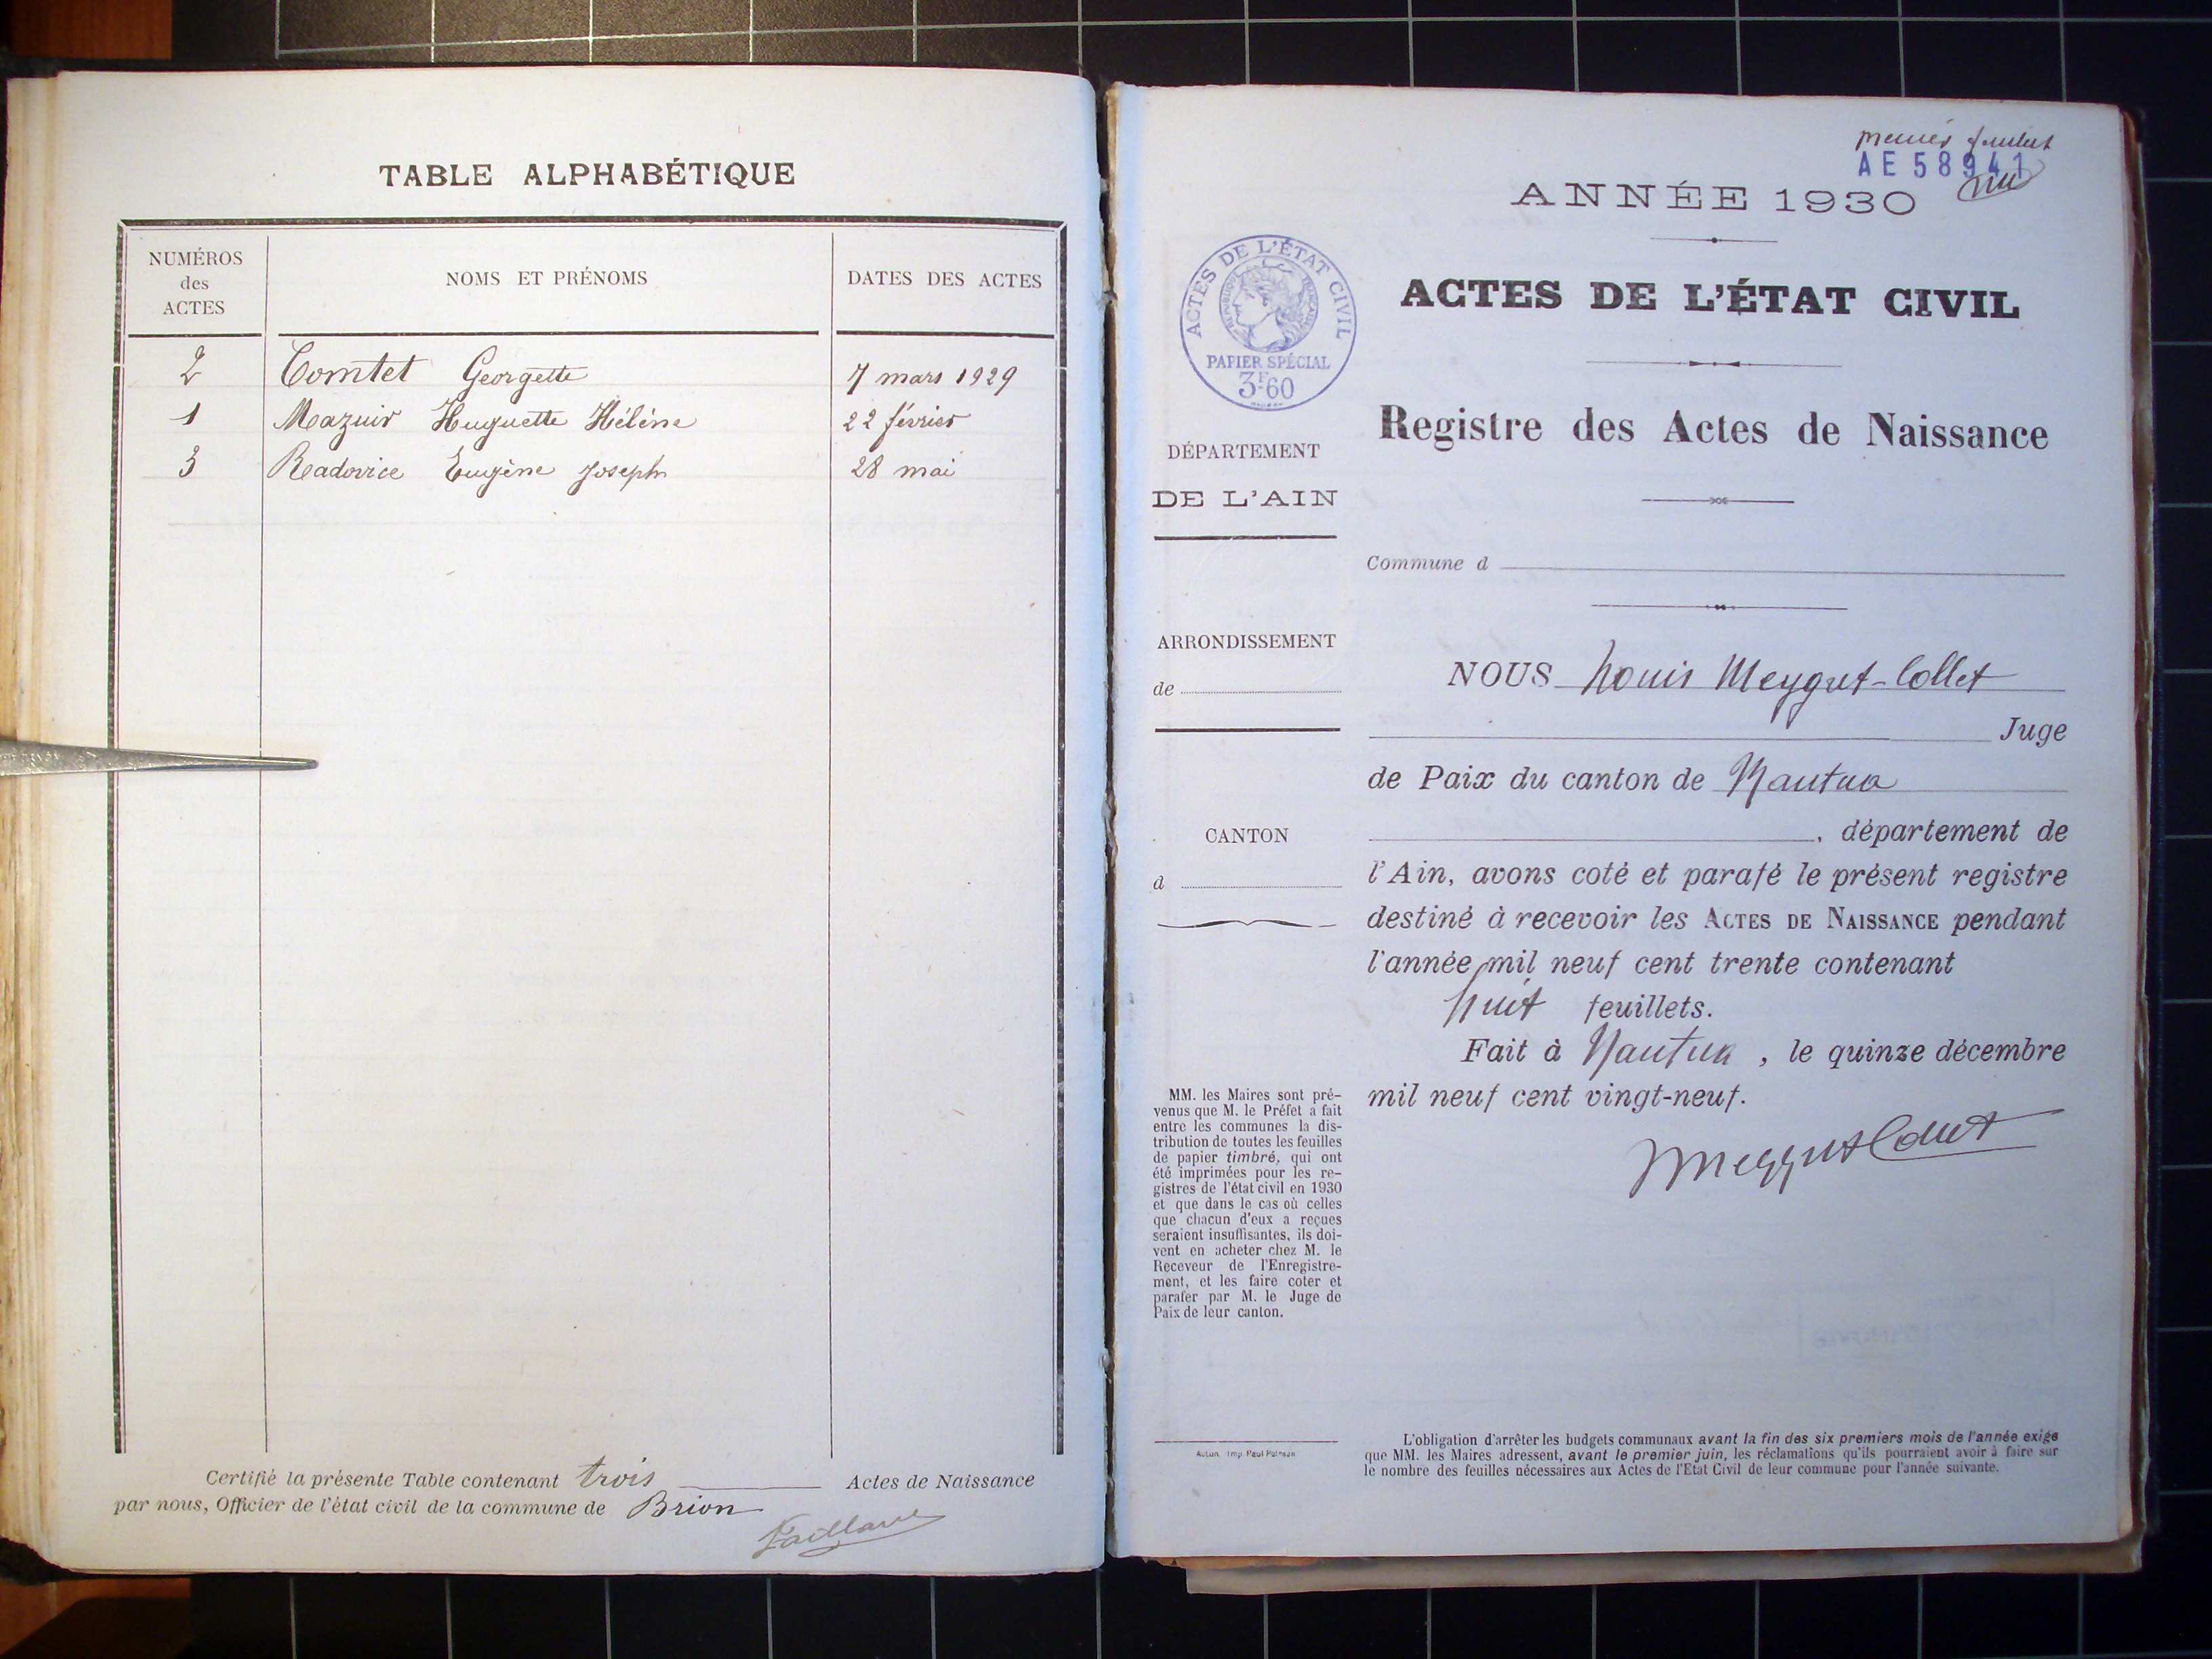 TABLE ALPHABÉTIQUE
NUMÉROS
des
ACTES
NOMS ET PRÉNOMS
DATES DES ACTES
2 Comtet Georgette 7 mars 1929
1 Mazuir Huguette Hélène 22 février
3 Radovice Eugène Joseph 28 mai
Certifié la présente Table contenant trois Actes de Naissance
par nous, Officier de l'état civil de la commune de Brion
AE 58941
ANNÉE 1930
ACTES DE L'ÉTAT CIVIL
RÉPUBLIQUE FRANÇAISE
PAPIER SPÉCIAL
3F60
ACTES DE L'ÉTAT CIVIL
Registre des Actes de Naissance
DÉPARTEMENT
DE L'AIN
Commune d
ARRONDISSEMENT
de
CANTON
d
NOUS Louis Meygret-Collet
Juge
de Paix du canton de Nantua
, département de
l'Ain, avons coté et parafé le présent registre
destiné à recevoir les ACTES DE NAISSANCE pendant
l'année mil neuf cent trente contenant
huit feuillets.
Fait à Nantua , le quinze décembre
mil neuf cent vingt-neuf.
MM. les Maires sont pré-
venus que M. le Préfet a fait
entre les communes la dis-
tribution de toutes les feuilles
de papier timbré, qui ont
été imprimées pour les re-
gistres de l'état civil en 1930
et que dans le cas où celles
que chacun d'eux a reçues
seraient insuffisantes, ils doi-
vent en acheter chez M. le
Receveur de l'Enregistre-
ment, et les faire coter et
parafer par M. le Juge de
Paix de leur canton.
L'obligation d'arrêter les budgets communaux avant la fin des six premiers mois de l'année exige
que MM. les Maires adressent, avant le premier juin, les réclamations qu'ils pourraient avoir à faire sur
le nombre des feuilles nécessaires aux Actes de l'Etat Civil de leur commune pour l'année suivante.